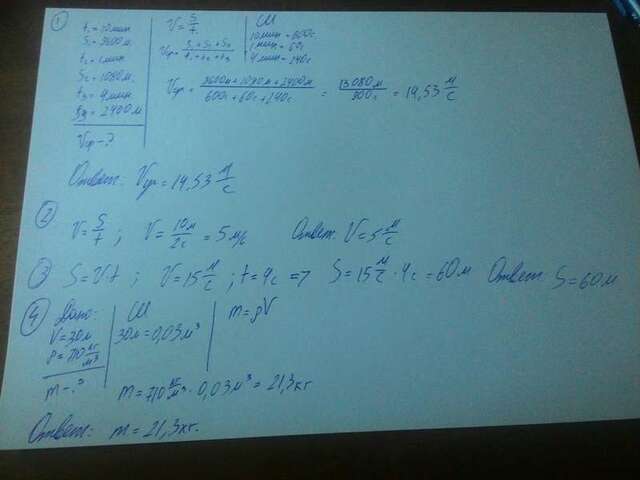 ①
t₁ = 10 мин
S₁ = 9600 м
t₂ = 1 мин
S₂ = 1080 м.
t₃ = 4 мин
S₃ = 2400 м
Vср - ?
V = S/t
Vср = (S₁ + S₂ + S₃)/(t₁ + t₂ + t₃)
СИ
10 мин = 600с
1 мин = 60с
4 мин = 240с
Vср = (9600м + 1080м + 2400м)/(600с + 60с + 240с) = 13080м/900с = 14,53 м/с
Ответ: Vср = 14,53 м/с
②
V = S/t ; V = 10м/2с = 5 м/с Ответ: V = 5 м/с
③ S = V·t ; V = 15 м/с ; t = 4с => S = 15 м/с · 4с = 60 м Ответ: S = 60 м
④ Дано:
V = 30л
ρ = 710 кг/м³
m - ?
СИ
30л = 0,03 м³
m = ρV
m = 710 кг/м³ · 0,03 м³ = 21,3 кг
Ответ: m = 21,3 кг.